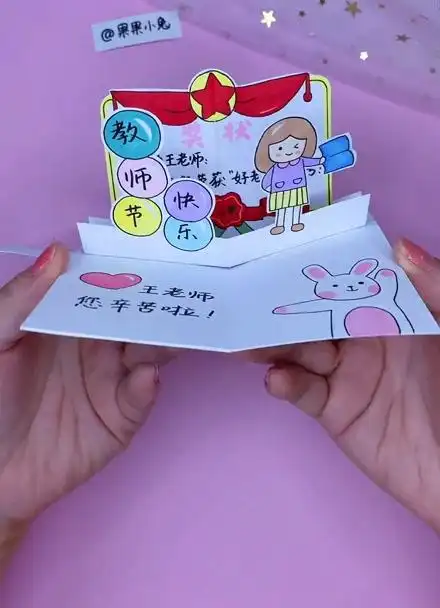 @果果小兔
奖状
王老师:
获"好老
教
师
节
快
乐
王老师
您辛苦啦!